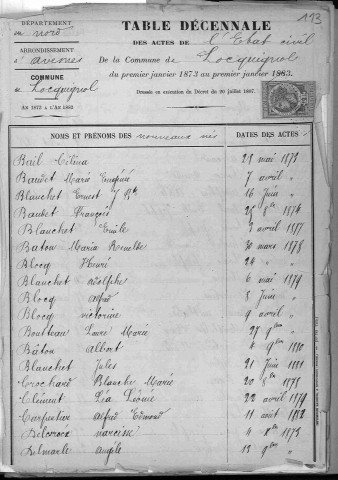 DÉPARTEMENT
du nord
ARRONDISSEMENT
d'avesnes
COMMUNE
de Locquignol
AN 1873 A L'AN 1882
113
TABLE DÉCENNALE
DES ACTES DE l'Etat civil
De la Commune de Locquignol
du premier janvier 1873 au premier janvier 1883.
Dressée en exécution du Décret du 20 juillet 1807.
NOMS ET PRÉNOMS DES nouveaux nés DATES DES ACTES
Bail Célina 29 mai 1873
Baudet Marie Eugénie 7 avril "
Blanchet Ernest J Bte 14 Juin "
Baudet François 25 8bre 1874
Blanchet Emile 9 avril 1877
Baton Maria 30 mars 1878
Blocq Henri 24 "
Blanchet Adolphe 6 mai 1879
Blocq alfred 8 Juin "
Blocq victorine 9 avril "
Laure Marie 27 9bre "
Bâton Albert 4 1880
Blanchet Jules 21 Juin 1881
Crochard Blanche Marie 20 1873
Clément Léa Léonie 22 avril 1879
Carpentier Alfred Edmond 11 août 1882
Delcroix narcisse 4 1873
Delmarle angèle 13 9bre "